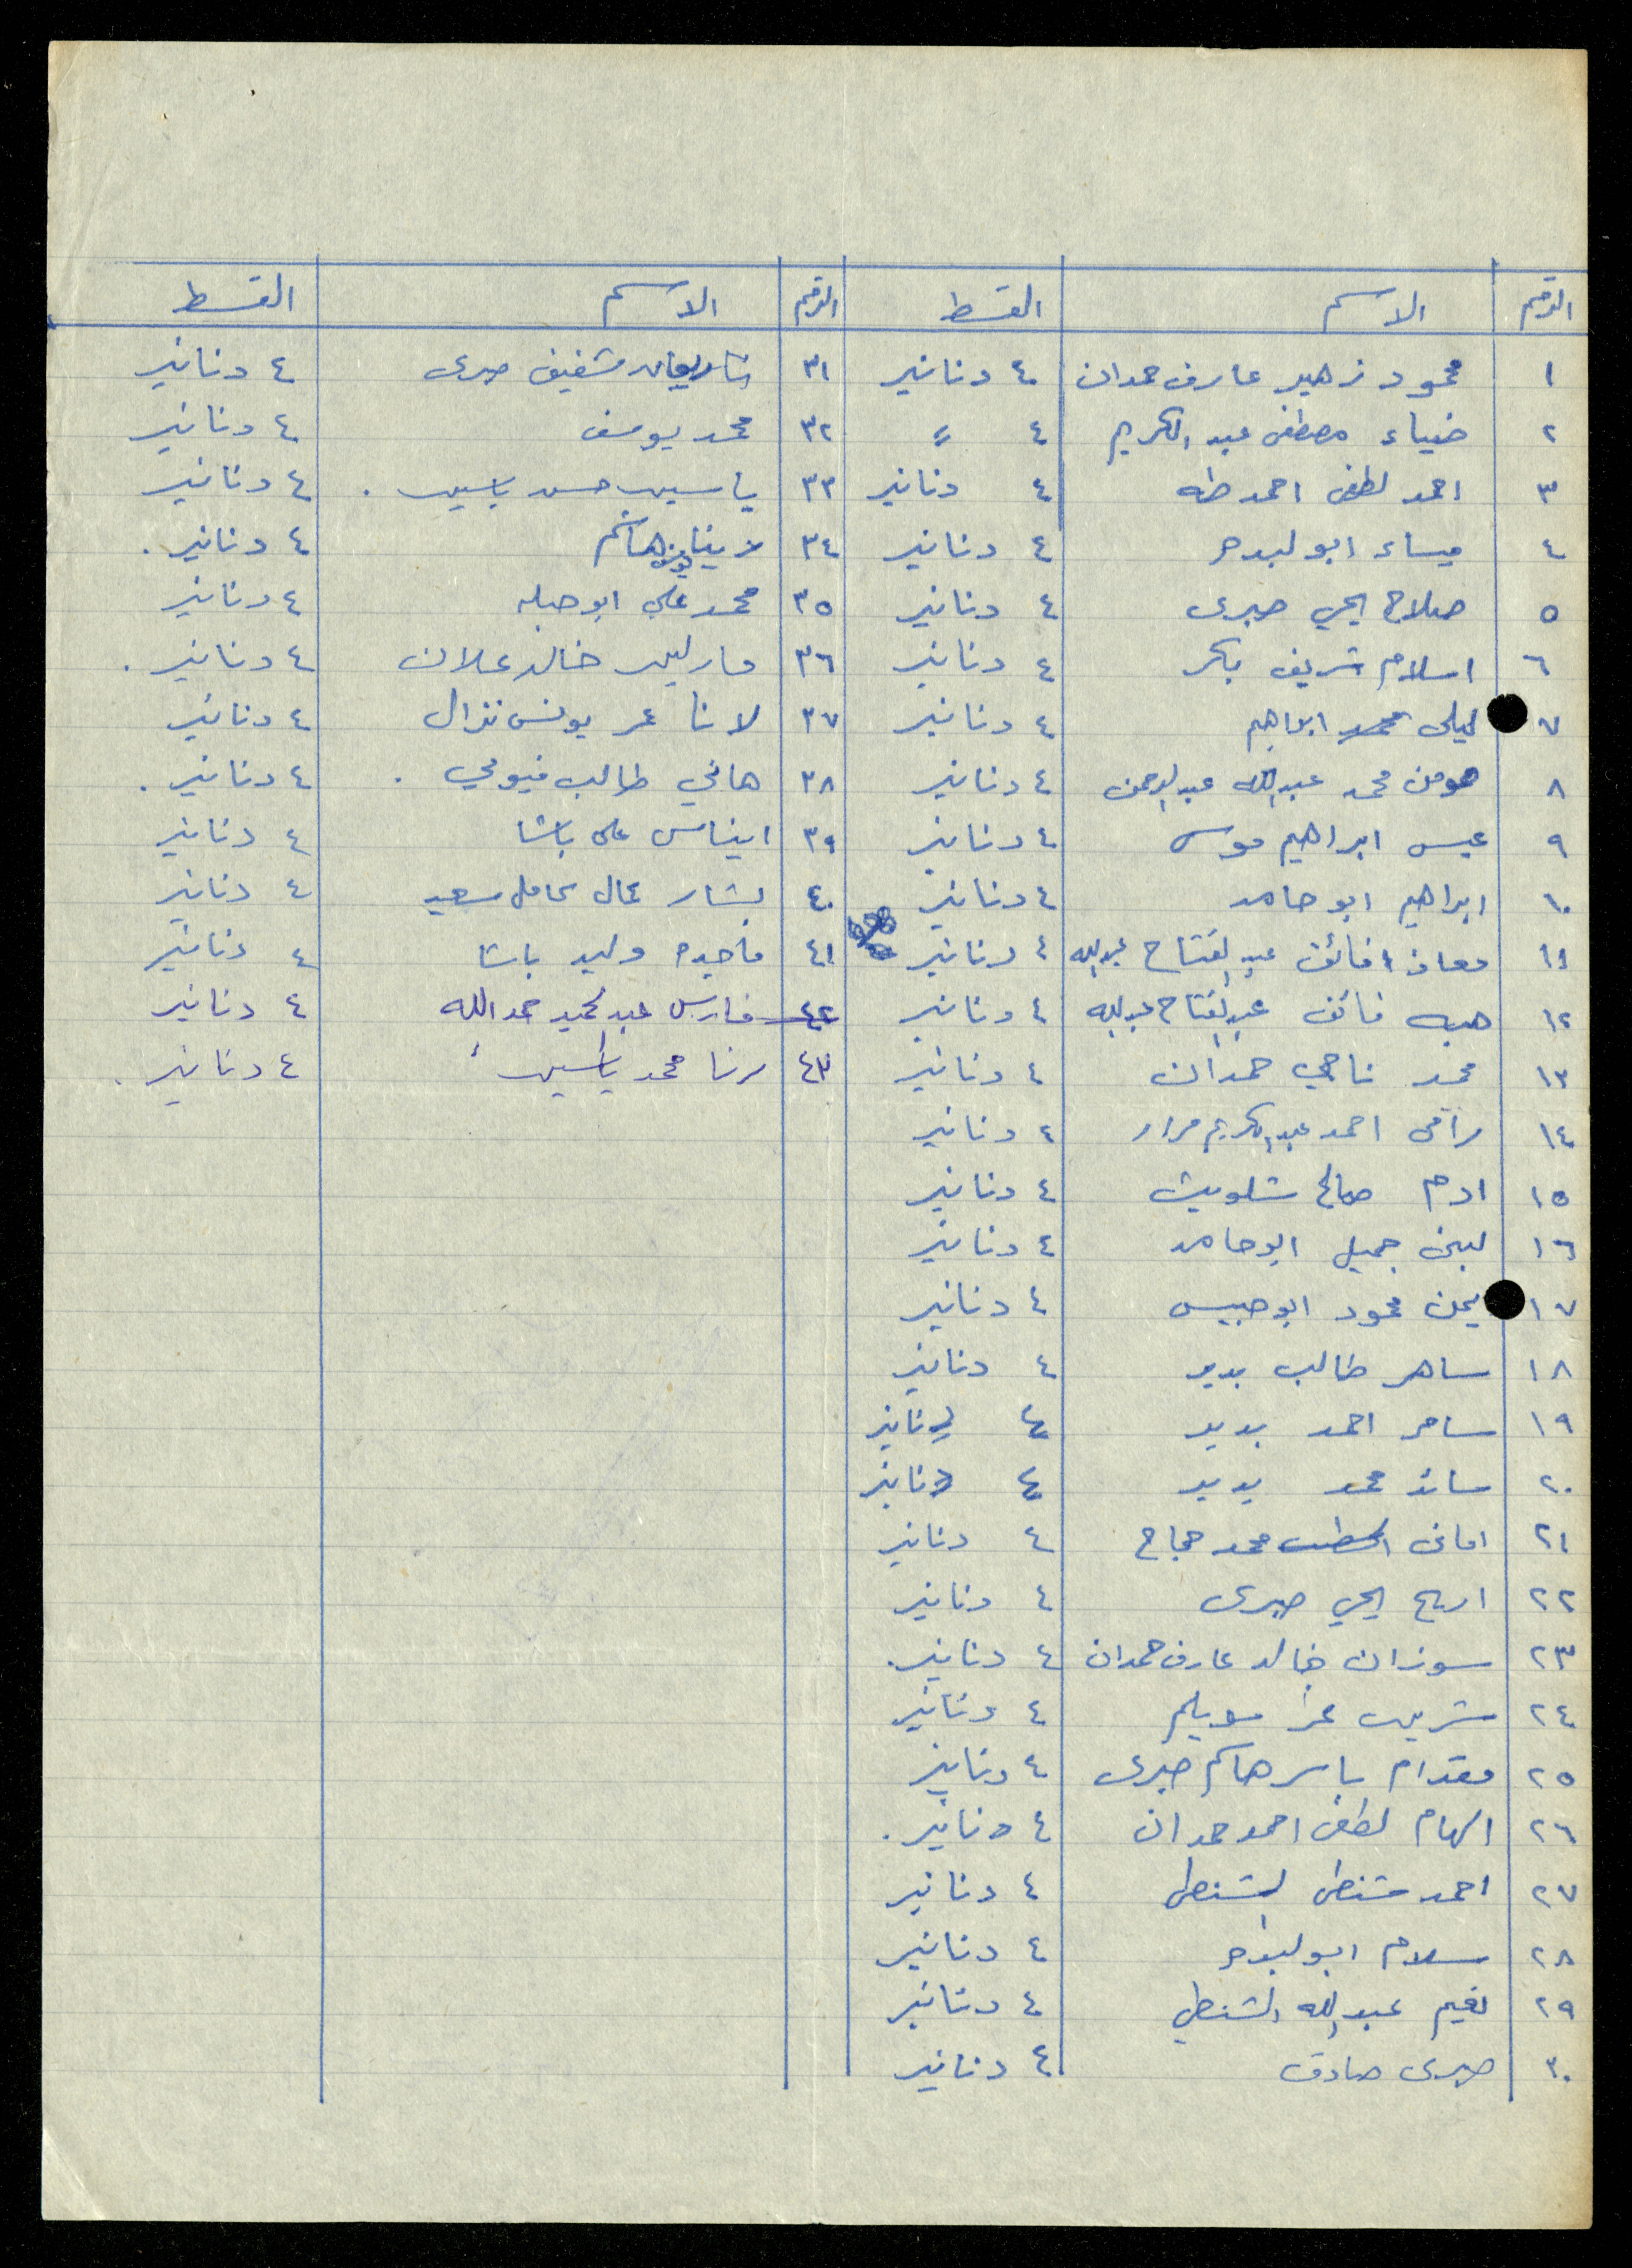 الرقم الاسم القسط الرقم الاسم القسط
١ محمود زهير عارف حمدان ٤ دنانير ٣١ شفيق صبري ٤ دنانير
٢ ضياء مصطفى عبد الكريم ٤ " ٣٢ محمد يوسف ٤ دنانير
٣ احمد لطفي احمد طه ٤ دنانير ٣٣ ياسين حسن ياسين . ٤ دنانير
٤ ميساء ابو لبده ٤ دنانير ٣٤ دينا هاشم ٤ دنانير .
٥ صلاح يحيى صبري ٤ دنانير ٣٥ محمد علي ابو حبله ٤ دنانير
٦ اسلام شريف بكر ٤ دنانير ٣٦ مارلين خالد علان ٤ دنانير .
٧ ليلى محمد ابراهيم ٤ دنانير ٣٧ لانا عمر يونس نزال ٤ دنانير
٨ مؤمن محمد عبدالله عبدالرحمن ٤ دنانير ٣٨ هاني طالب فيومي . ٤ دنانير .
٩ عيسى ابراهيم موسى ٤ دنانير ٣٩ ايناس علي باشا ٤ دنانير
١٠ ابراهيم ابو حامد ٤ دنانير ٤٠ بشار كمال كامل سعيد ٤ دنانير
١١ معاذ فائق عبد الفتاح عبدالله ٤ دنانير ٤١ ماجده وليد باشا ٤ دنانير
١٢ هبه فائق عبد الفتاح عبدالله ٤ دنانير ٤٢ فارس عبد الحميد حمدالله ٤ دنانير
١٣ محمد ناجي حمدان ٤ دنانير ٤٣ رنا محمد ياسين ٤ دنانير .
١٤ رامي احمد عبد الكريم مرار ٤ دنانير
١٥ ادم صالح شلويت ٤ دنانير
١٦ لبنى جميل ابو حامد ٤ دنانير
١٧ ايمن محمود ابو حبيس ٤ دنانير
١٨ ساهر طالب بدير ٤ دنانير
١٩ سامر احمد بدير ٤ دنانير
٢٠ سائد محمد بدير ٤ دنانير
٢١ اماني محمد حجاج ٤ دنانير
٢٢ اريج يحيى صبري ٤ دنانير
٢٣ سوزان خالد عارف حمدان ٤ دنانير .
٢٤ شرين عمر سويلم ٤ دنانير
٢٥ مقدام ياسر هاكم صبري ٤ دنانير
٢٦ الهام لطفي احمد حمدان ٤ دنانير .
٢٧ احمد شنطي الشنطي ٤ دنانير
٢٨ سلام ابو لبده ٤ دنانير
٢٩ نعيم عبدالله الشنطي ٤ دنانير
٣٠ صبري صادق ٤ دنانير